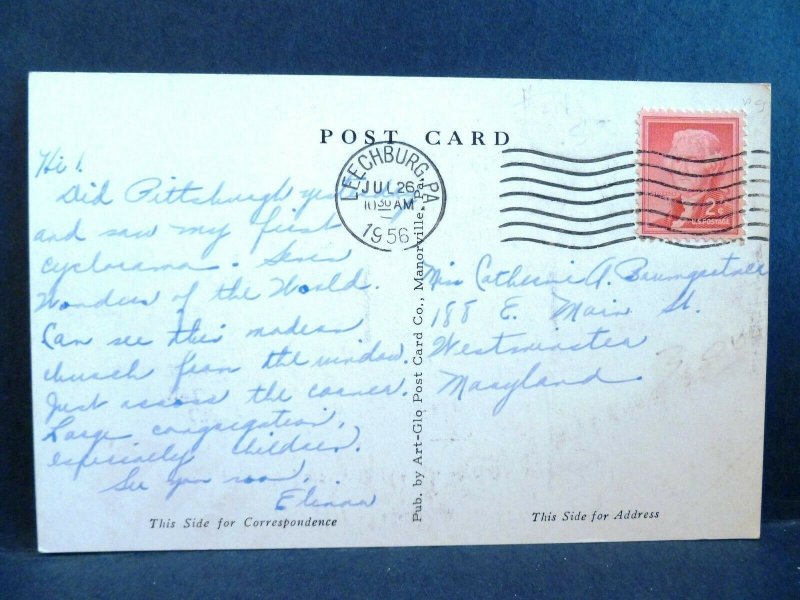 POST CARD
LEECHBURG, PA.
JUL 26
10 30 AM
1956
2¢
U.S. POSTAGE
Hi!
Did Pittsburgh
and saw my first
cyclorama. Seven
Wonders of the World.
Can see this modern
church from the window.
Just across the corner.
Large congregation,
especially children.
See you soon,
Elinna
Pub. by Art-Glo Post Card Co., Manorville, Pa.
Miss Catherine A. Baumgartner
188 E. Main St.
Westminster
Maryland.
This Side for Correspondence
This Side for Address